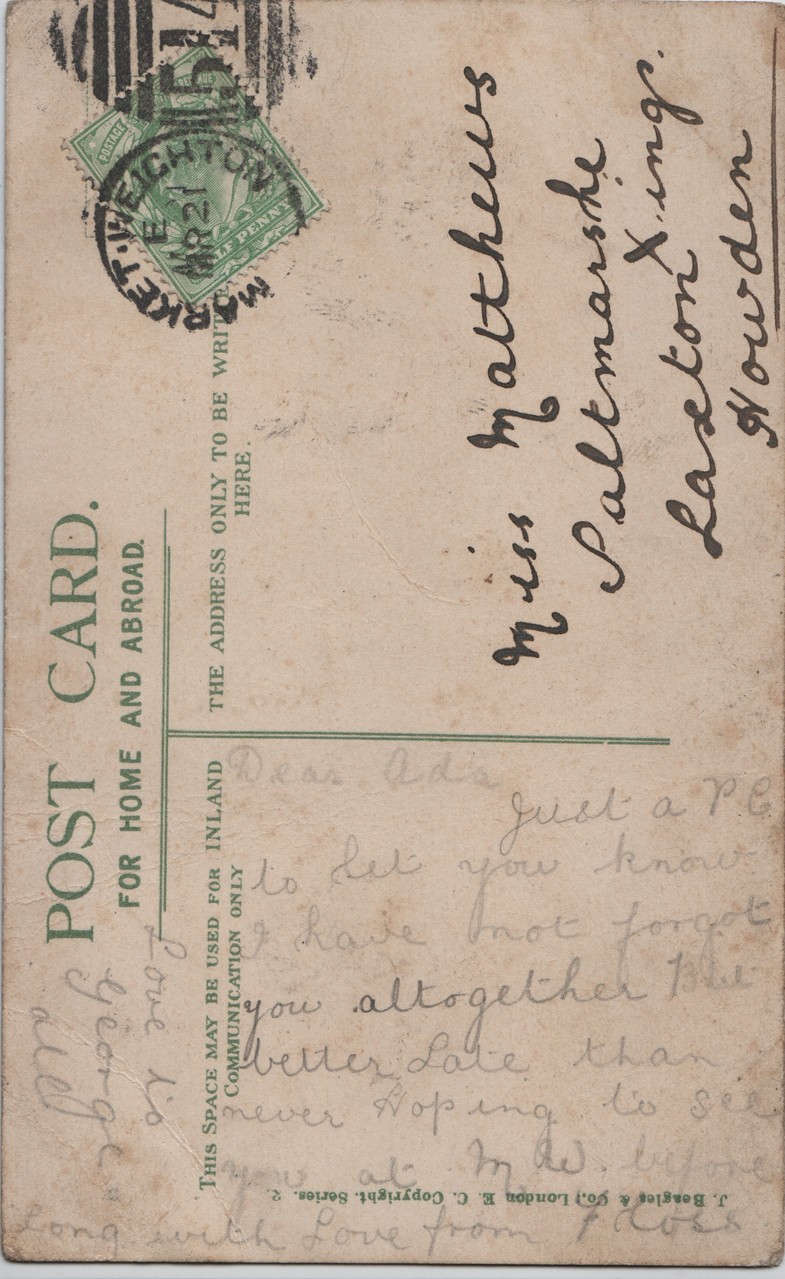 POST CARD.
FOR HOME AND ABROAD.
THIS SPACE MAY BE USED FOR INLAND
COMMUNICATION ONLY
THE ADDRESS ONLY TO BE WRIT
HERE.
514
POSTAGE REVENUE
LF PENNY
MARKET-WEIGHTON
E
MR 21
Miss Matthews
Saltmarshe
Laxton X.ing.
Howden
Dear Ada
Just a PC
to let you know
I have not forgot
you altogether But
better Late than
never Hoping to see
you at M W. before
Long with Love from Floss
Love to
George
J. Beagles & Co., London E. C. Copyright. Series. 2